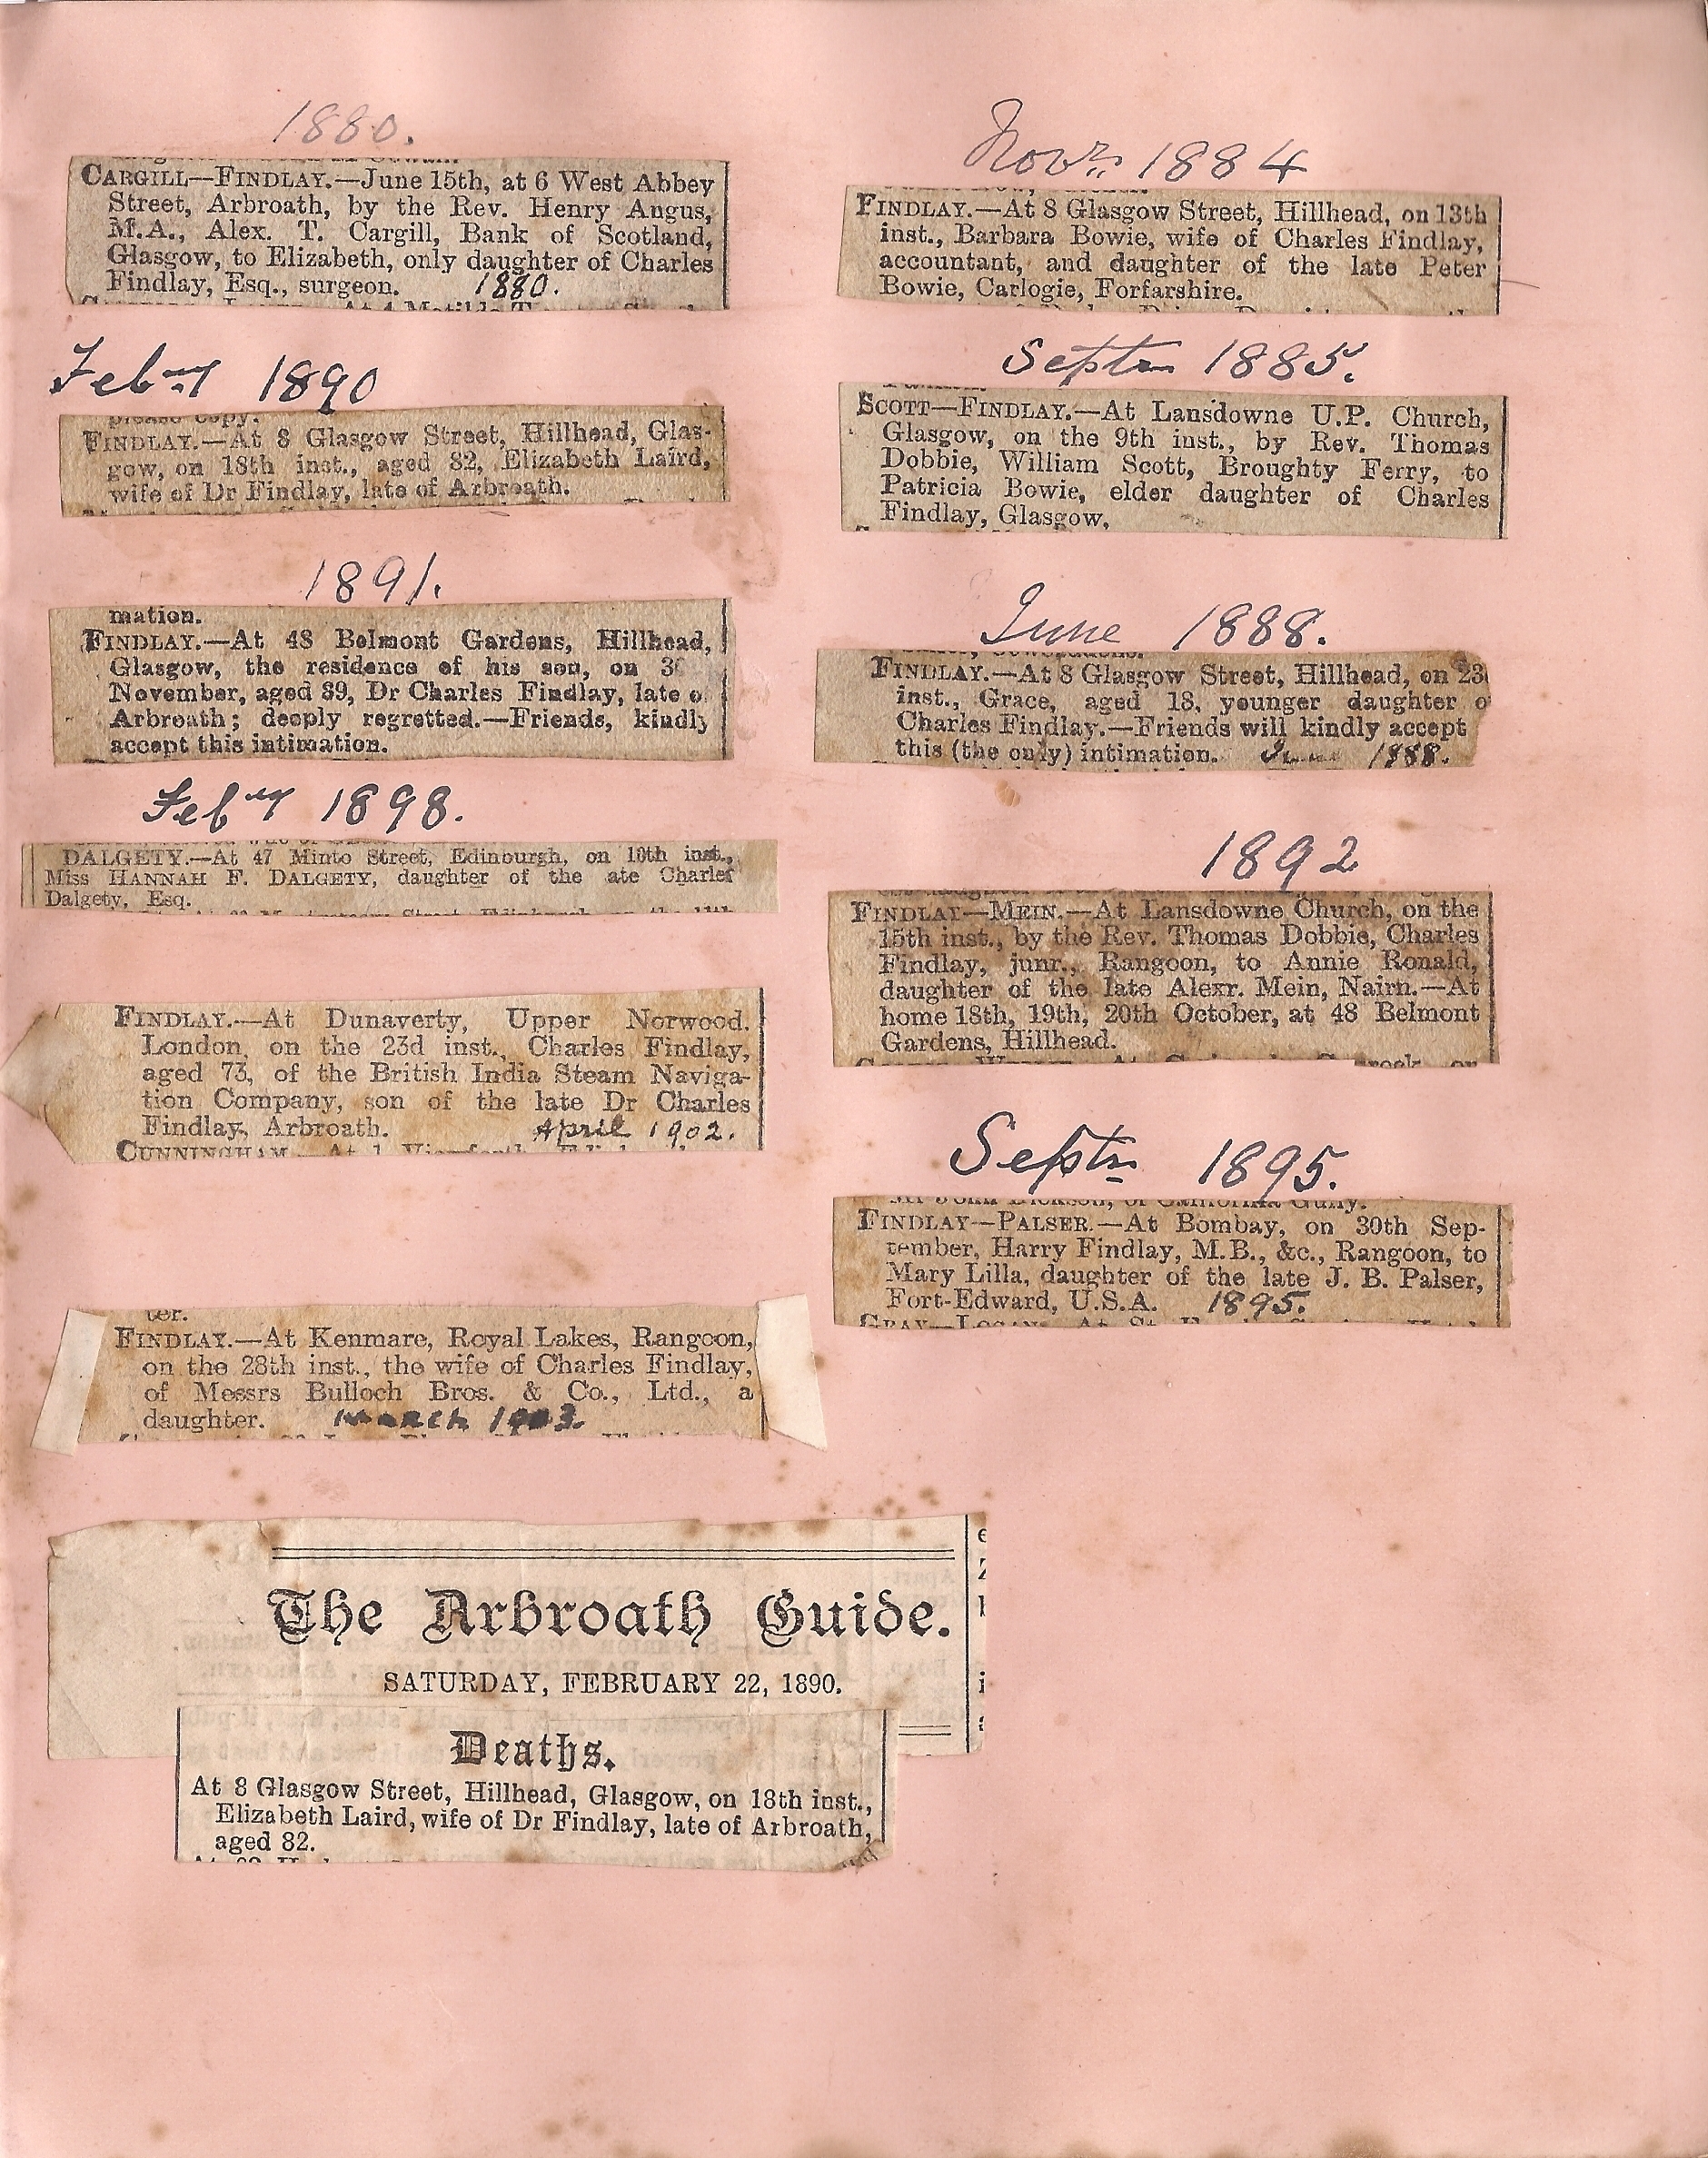 1880.
CARGILL—FINDLAY.—June 15th, at 6 West Abbey
Street, Arbroath, by the Rev. Henry Angus,
M.A., Alex. T. Cargill, Bank of Scotland,
Glasgow, to Elizabeth, only daughter of Charles
Findlay, Esq., surgeon. 1880.
Febry 1890
please copy.
FINDLAY.—At 8 Glasgow Street, Hillhead, Glas-
gow, on 18th inst., aged 82, Elizabeth Laird,
wife of Dr Findlay, late of Arbroath.
1891.
mation.
FINDLAY.—At 48 Belmont Gardens, Hillhead,
Glasgow, the residence of his son, on 30
November, aged 89, Dr Charles Findlay, late o
Arbroath; deeply regretted.—Friends, kindly
accept this intimation.
Febry 1898.
DALGETY.—At 47 Minto Street, Edinburgh, on 10th inst.,
Miss HANNAH F. DALGETY, daughter of the ate Charles
Dalgety, Esq.
FINDLAY.—At Dunaverty, Upper Norwood.
London, on the 23d inst., Charles Findlay,
aged 73, of the British India Steam Naviga-
tion Company, son of the late Dr Charles
Findlay, Arbroath. April 1902.
CUNNINGHAM.—At 1
ter.
FINDLAY.—At Kenmare, Royal Lakes, Rangoon,
on the 28th inst., the wife of Charles Findlay,
of Messrs Bulloch Bros. & Co., Ltd., a
daughter. March 1903.
The Arbroath Guide.
SATURDAY, FEBRUARY 22, 1890.
Deaths.
At 8 Glasgow Street, Hillhead, Glasgow, on 18th inst.,
Elizabeth Laird, wife of Dr Findlay, late of Arbroath,
aged 82.
Novr. 1884
FINDLAY.—At 8 Glasgow Street, Hillhead, on 13th
inst., Barbara Bowie, wife of Charles Findlay,
accountant, and daughter of the late Peter
Bowie, Carlogie, Forfarshire.
Septr 1885.
SCOTT—FINDLAY.—At Lansdowne U.P. Church,
Glasgow, on the 9th inst., by Rev. Thomas
Dobbie, William Scott, Broughty Ferry, to
Patricia Bowie, elder daughter of Charles
Findlay, Glasgow.
June 1888.
FINDLAY.—At 8 Glasgow Street, Hillhead, on 23
inst., Grace, aged 18, younger daughter o
Charles Findlay.—Friends will kindly accept
this (the only) intimation. June 1888.
1892
FINDLAY—MEIN.—At Lansdowne Church, on the
15th inst., by the Rev. Thomas Dobbie, Charles
Findlay, junr., Rangoon, to Annie Ronald,
daughter of the late Alexr. Mein, Nairn.—At
home 18th, 19th, 20th October, at 48 Belmont
Gardens, Hillhead.
Septr 1895.
Mr John Dickson, of California Gully.
FINDLAY—PALSER.—At Bombay, on 30th Sep-
tember, Harry Findlay, M.B., &c., Rangoon, to
Mary Lilla, daughter of the late J. B. Palser,
Fort-Edward, U.S.A. 1895.